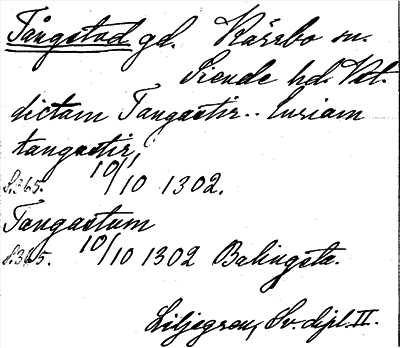 Tångstad gd. Kärrbo sn.
Siende hd. Vstm.
dictam Tangastir.. curiam
tangastir,
S.365. 10/10 1302.
Tangastum
S.365. 10/10 1302 Balingsta.
Liljegren, Sv. dipl. II.